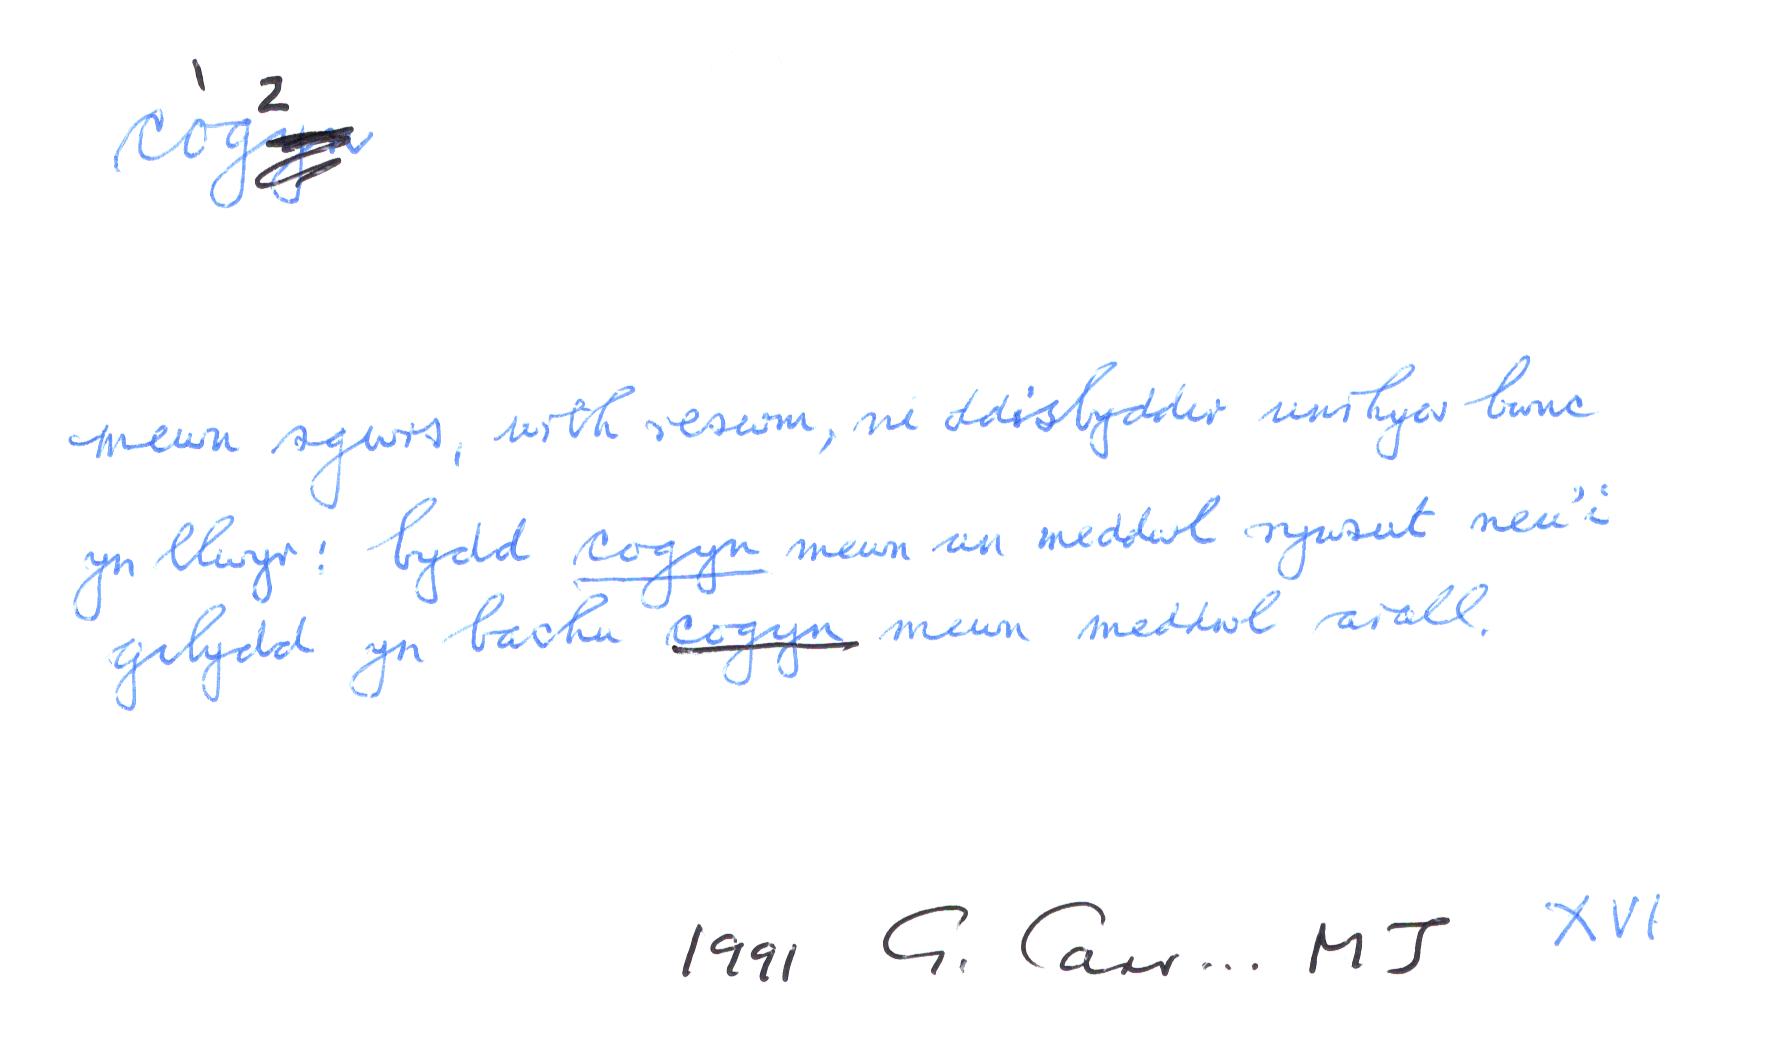 1 2
cogyn
mewn sgwrs, wrth reswm, ni ddisbyddir unrhyw bwnc
yn llwyr: bydd cogyn mewn un meddwl rywsut neu'i
gilydd yn bachu cogyn mewn meddwl arall.
1991 G. Carr... MJ XVI